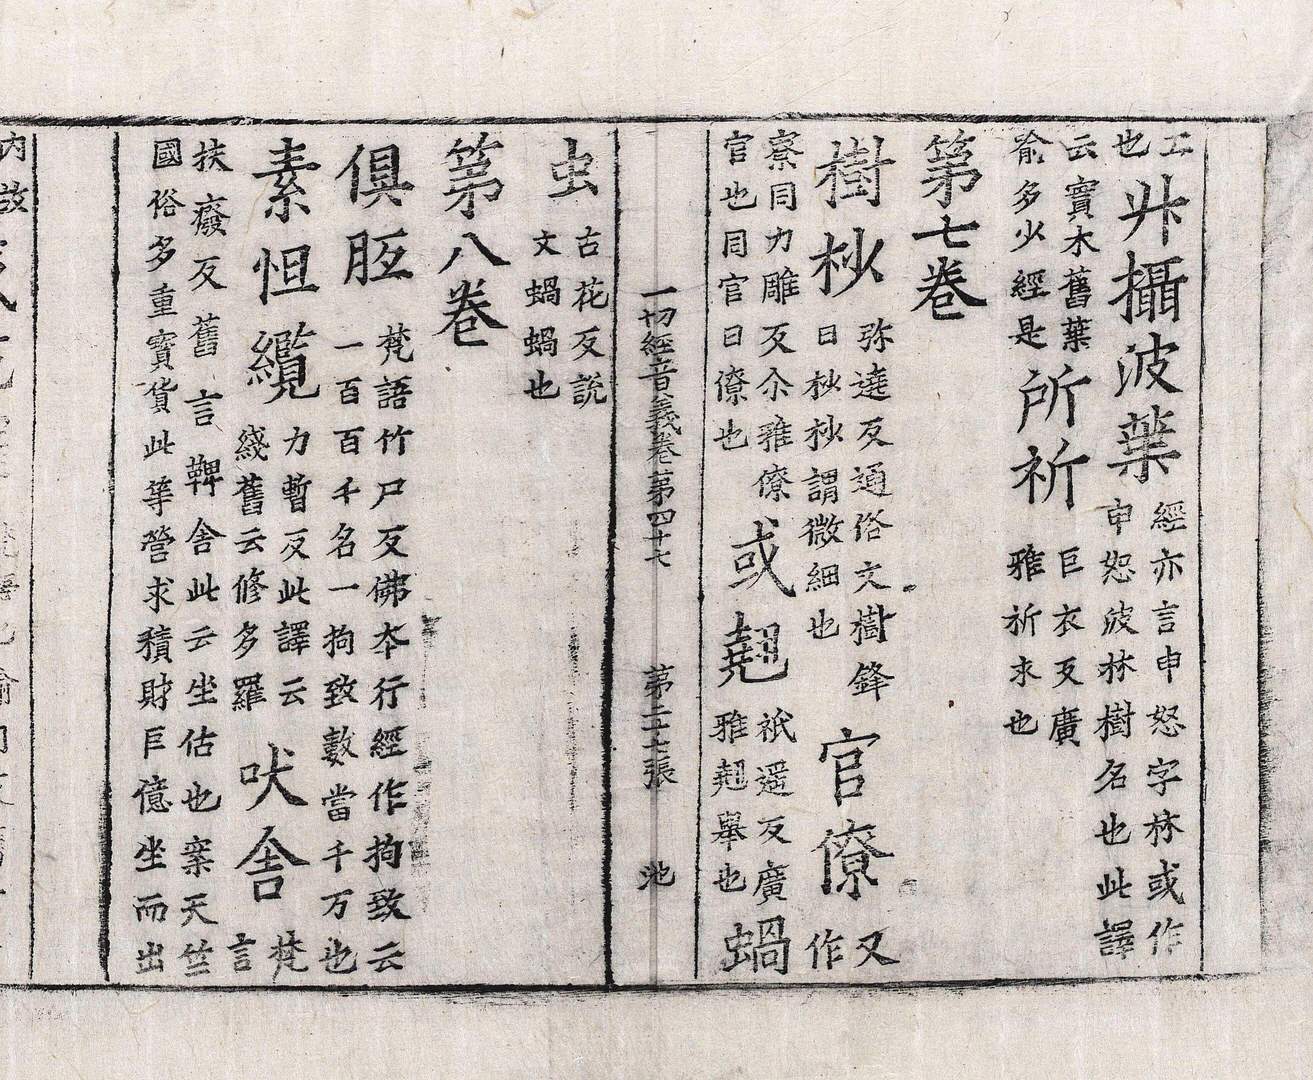 工也升攝波葉經亦言申怒字林或作申恕波林樹名也此譯
云實木舊葉喻多少經是所祈巨衣反廣雅祈求也
第七卷
樹杪弥遶反通俗文樹鋒曰杪杪謂微細也官僚又作
寮同力雕反尒雅僚官也同官曰僚也或翹祇遥反廣雅翹舉也蝸
一切經音義卷第四十七 第二十七張 池
虫古花反說文蝸蝸也
第八卷
俱胝梵語竹尸反佛本行經作拘致云一百百千名一拘致數當千万也
素怛纜力暫反此譯云綫舊云修多羅吠舍梵言
扶癈反舊言鞞舍此云坐估也案天竺國俗多重寶貨此等營求積財巨億坐而出
内故